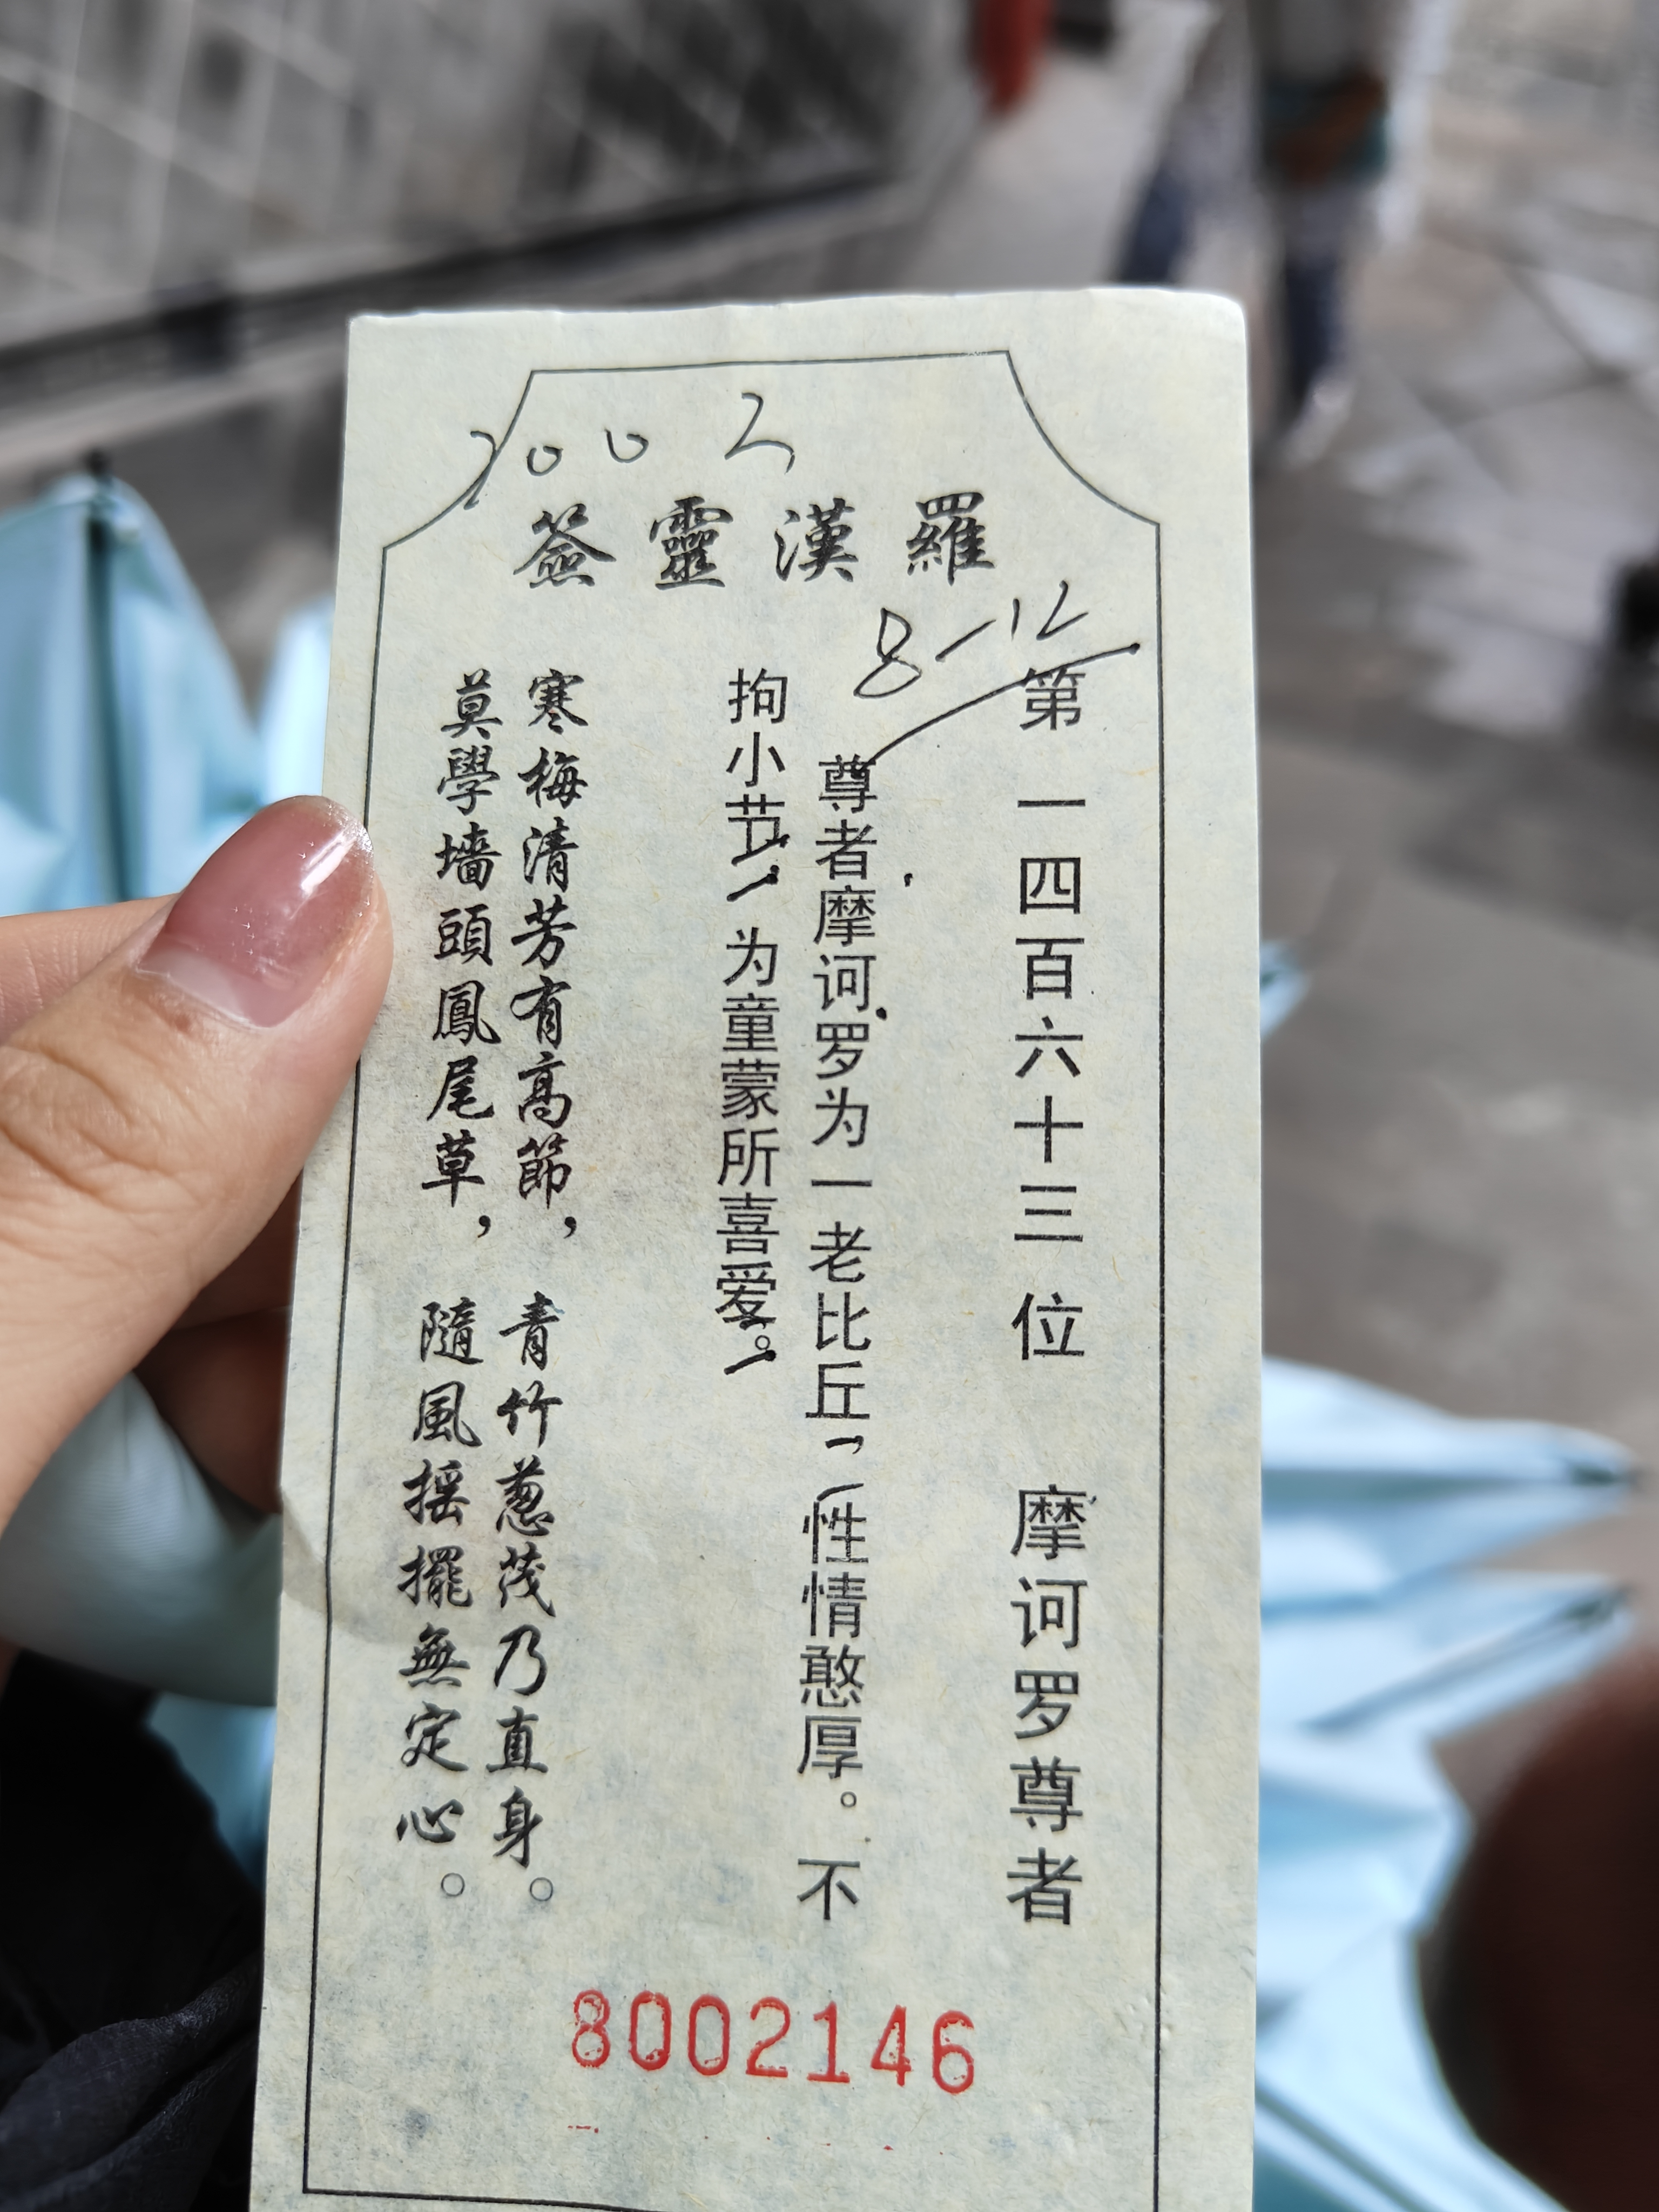 2002
羅漢靈簽
8-12
第一四百六十三位 摩诃罗尊者
尊者摩诃罗为一老比丘，性情憨厚。不
拘小节，为童蒙所喜爱。
寒梅清芳有高節，青竹蔥茂乃直身。
莫學墻頭鳳尾草，隨風摇擺無定心。
8002146